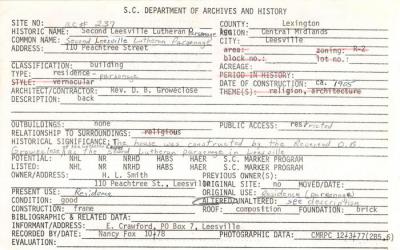 S.C. DEPARTMENT OF ARCHIVES AND HISTORY
SITE NO. ac # 239 COUNTY: Lexington
HISTORIC NAME: Second Leesville Lutheran Parsonage REGION: Central Midlands
COMMON NAME: Second Leesville Lutheran Parsonage CITY: Leesville
ADDRESS: 110 Peachtree Street area: zoning: R-2
block no.: lot no.:
CLASSIFICATION: building ACREAGE:
TYPE: residence - parsonage PERIOD IN HISTORY:
STYLE: vernacular DATE OF CONSTRUCTION: ca. 1905
ARCHITECT/CONTRACTOR: Rev. D. B. Groweclose THEME(S): religion, architecture
DESCRIPTION: back
OUTBUILDINGS: none PUBLIC ACCESS: restricted
RELATIONSHIP TO SURROUNDINGS: religious
HISTORICAL SIGNIFICANCE: The house was constructed by the Reverend D.B.
Groweclose as the second Lutheran parsonage in Leesville
POTENTIAL: NHL NR NRHD HABS HAER S.C. MARKER PROGRAM
LISTED: NHL NR NRHD HABS HAER S.C. MARKER PROGRAM
OWNER/ADDRESS: H. L. Smith PREVIOUS OWNER(S):
110 Peachtree St., Leesville ORIGINAL SITE: no MOVED/DATE:
PRESENT USE: Residence ORIGINAL USE: Residence (parsonage)
CONDITION: good ALTERED/UNALTERED: see description
CONSTRUCTION: frame ROOF: composition FOUNDATION: brick
BIBLIOGRAPHIC & RELATED INFORMATION:
INFORMANT: E. Crawford, PO Box 7, Leesville
RECORDED BY/DATE: Nancy Fox 10/78 PHOTOGRAPHIC DATA: CMRPC
EVALUATION: